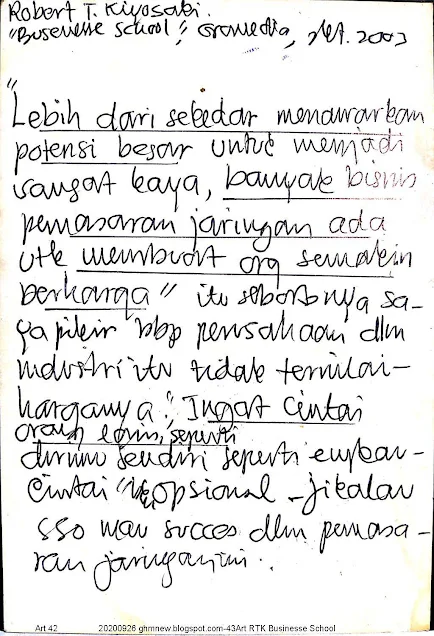 Robert T. Kiyosaki.
"Busenesse School", Gramedia, 2003
"
Lebih dari sekedar menawarkan
potensi besar untuk menjadi
sangat kaya, banyak bisnis
pemasaran jaringan ada
utk membuat org semakin
berharga" itu sebabnya sa-
ya pikir bbp perusahaan dlm
industri itu tidak ternilai-
harganya". Ingat Cintai
orang lain, seperti
dirimu sendiri seperti engkau-
Cintai opsional - jikalau
sso mau succes dlm pemasa-
ran jaringan ini.
Art 42 20200926 ghmnew.blogspot.com-43Art RTK Businesse School